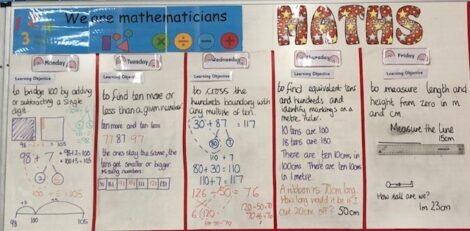 We are mathematicians
MATHS
Monday
Learning Objective
to bridge 100 by adding
or subtracting a single
digit
98 + 7
98+2=100
100+5=105
100 + 5 = 105
98 100 105
Tuesday
Learning Objective
to find ten more or
less than a given number
ten more and ten less
77 87 97
the ones stay the same, the
tens get smaller or bigger.
Missing numbers:
Wednesday
Learning Objective
to cross the
hundreds boundary with
any multiple of ten.
30 + 87 = 117
80+30 = 110
110+7 = 117
126 - 50 = 76
Thursday
Learning Objective
to find equivalent tens
and hundreds and
identify markings on a
metre ruler.
10 tens are 100
18 tens are 180
There are ten 10cm in
100cm. There are ten 10cm
in 1 metre.
A ribbon is 70cm long.
How long would it be if I
cut 20cm off? 50cm
Friday
Learning Objective
to measure length and
height from zero in m
and cm
Measure the line
15cm
How tall are we?
1m 23cm